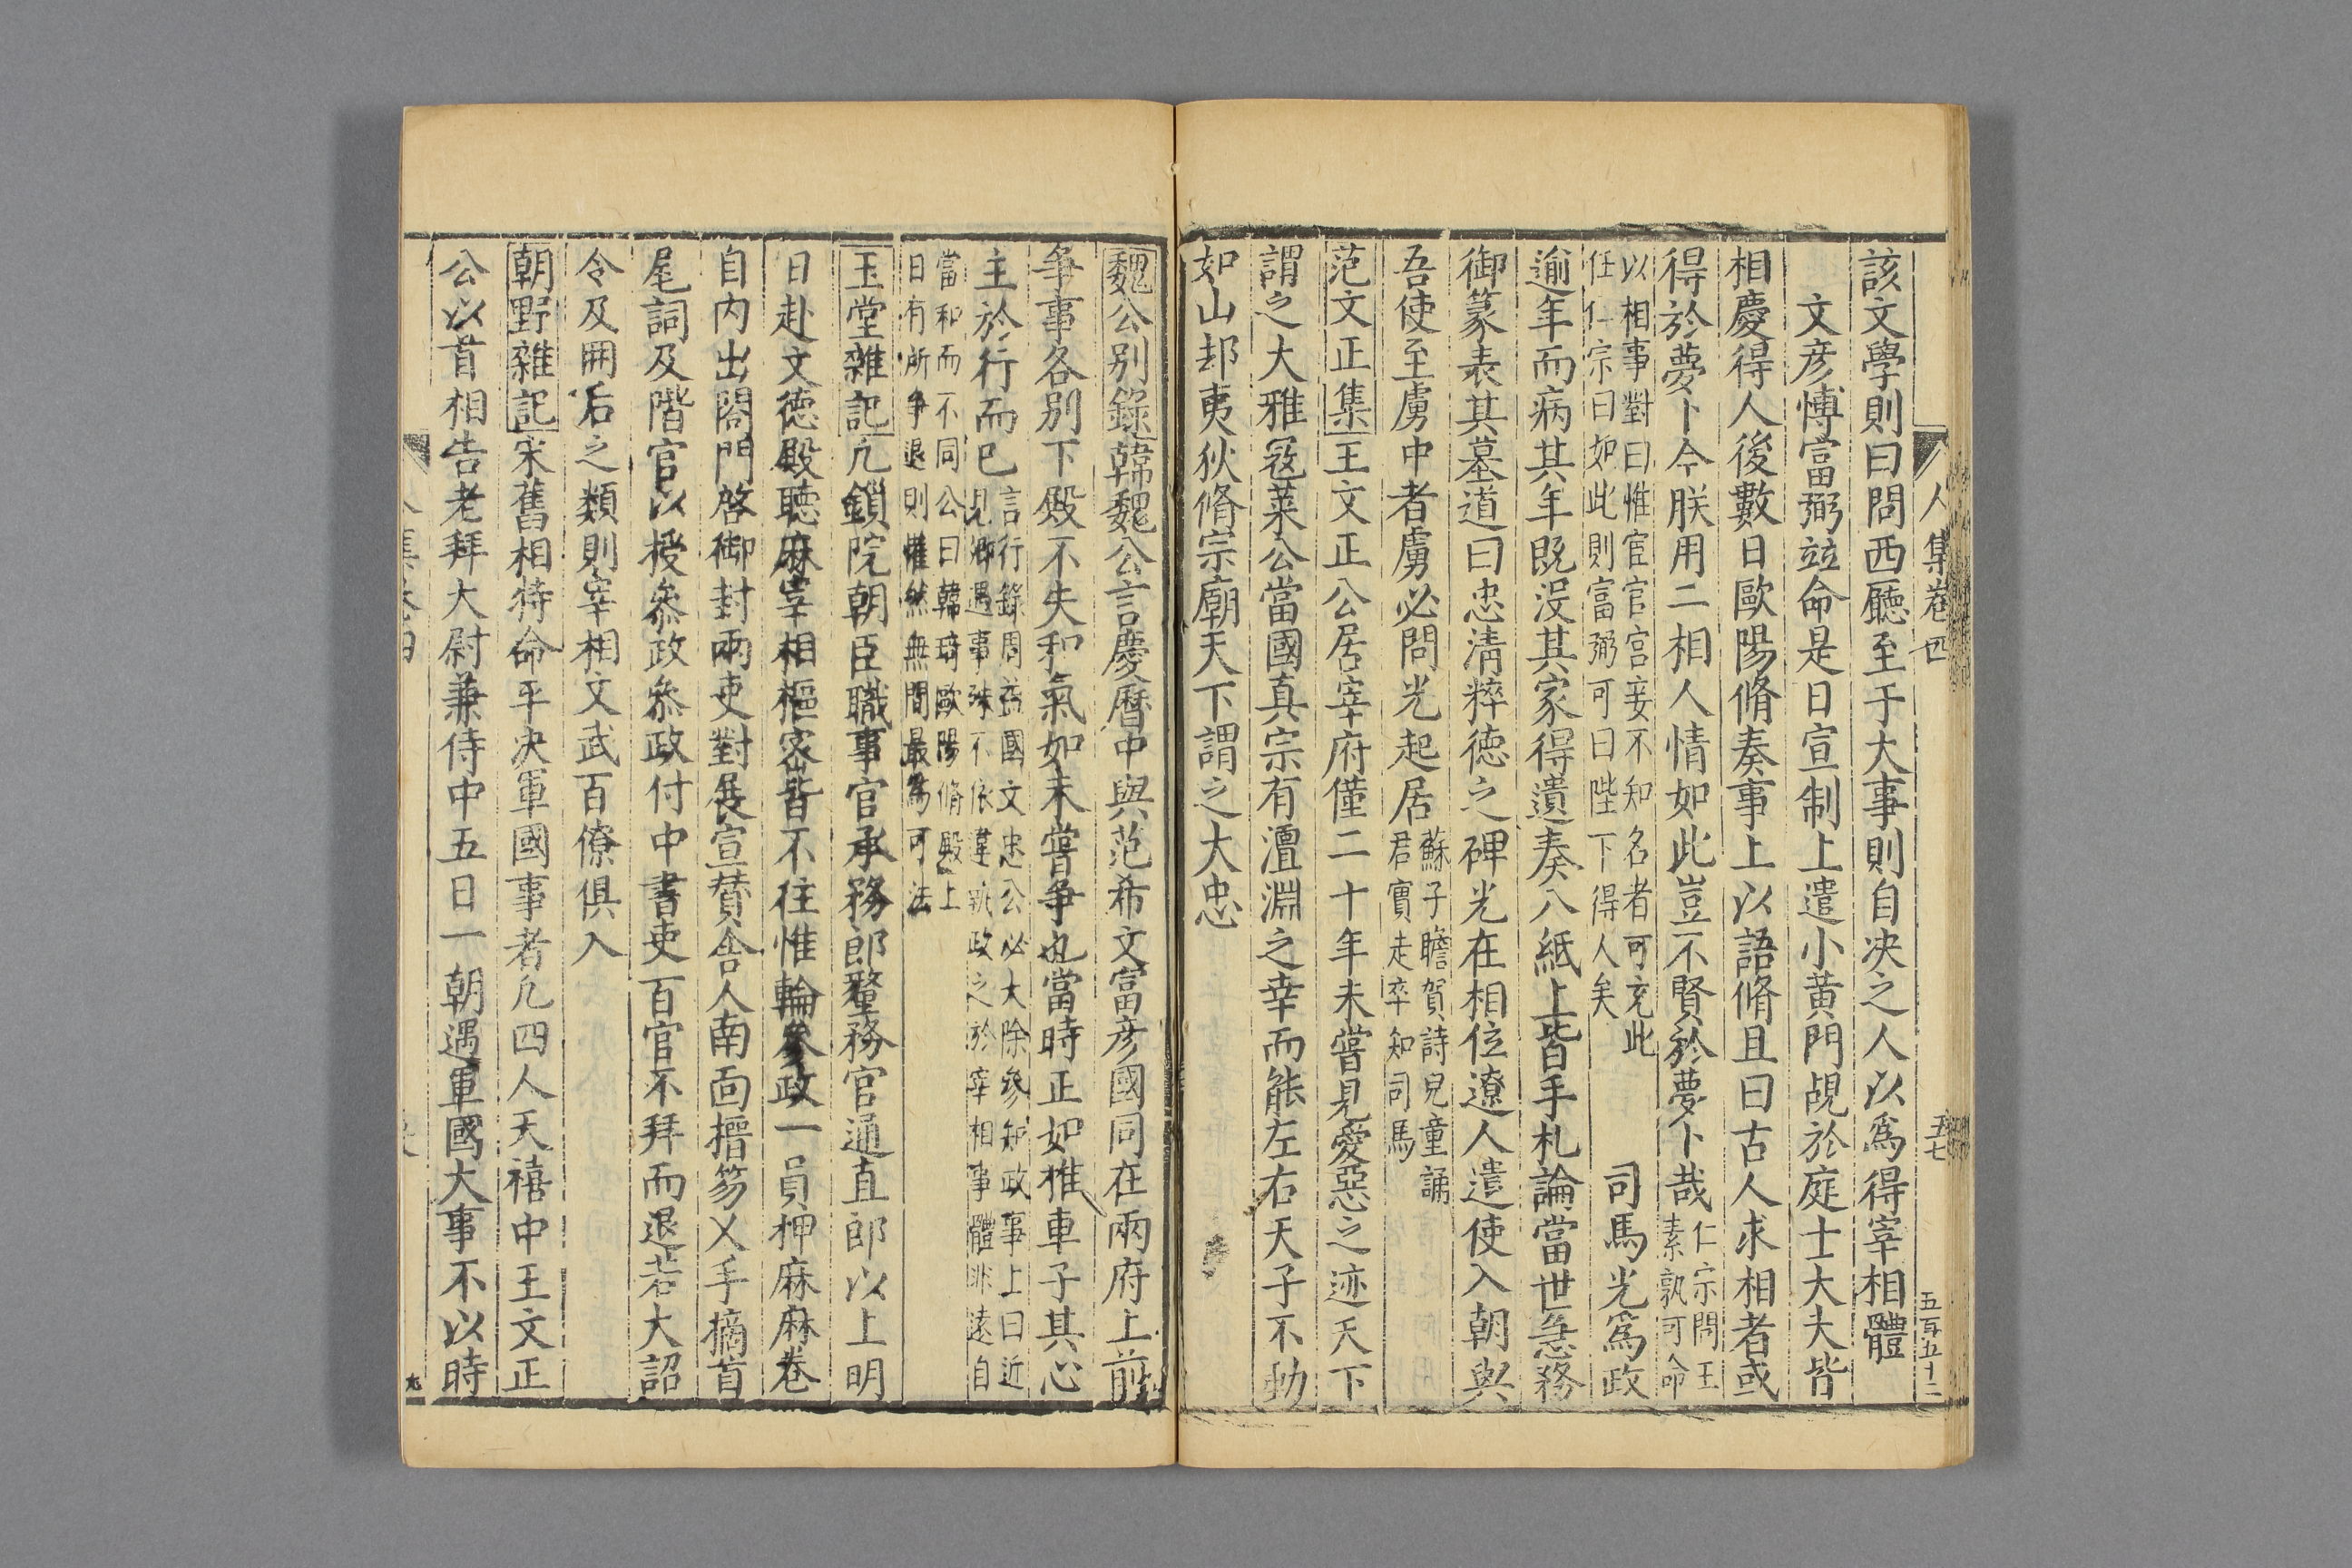 人集卷四 五七 五百五十二
該文學則曰問西廳至于大事則自决之人以爲得宰相體
文彦愽富弼竝命是日宣制上遣小黄門覘於庭士大夫皆
相慶得人後數日歐陽脩奏事上以語脩且曰古人求相者或
得於夢卜今朕用二相人情如此豈不賢於夢卜哉仁宗問王素孰可命
以相事對曰惟宦官宫妾不知名者可充此任仁宗曰如此則富弼可曰陛下得人矣 司馬光爲政
逾年而病其年既没其家得遺奏八紙上皆手札論當世急務
御篆表其墓道曰忠清粹徳之碑光在相位遼人遣使入朝與
吾使至虜中者虜必問光起居蘇子瞻賀詩兒童誦君實走卒知司馬
范文正集王文正公居宰府僅二十年未嘗見愛惡之迹天下
謂之大雅冦莱公當國真宗有澶淵之幸而能左右天子不動
如山却夷狄脩宗廟天下謂之大忠
魏公别錄韓魏公言慶曆中與范希文富彦國同在兩府上前
争事各别下殿不失和氣如未嘗争也當時正如推車子其心
主於行而已言行錄周益國文忠公必大除參知政事上曰近見卿遇事殊不依違執政之於宰相事體非遠自
當和而不同公曰韓琦歐陽脩殿上日有所争退則懽然無間最爲可法
玉堂雜記凡鎖院朝臣職事官承務郎釐務官通直郎以上明
日赴文徳殿聽麻宰相樞密皆不往惟輪參政一員押麻麻卷
自内出閤門啓御封兩吏對展宣賛舍人南面搢笏乂手摘首
尾詞及階官以授參政參政付中書吏百官不拜而退若大詔
令及册后之類則宰相文武百僚俱入
朝野雜記宋舊相特命平决軍國事者凡四人天禧中王文正
公以首相告老拜大尉兼侍中五日一朝遇軍國大事不以時